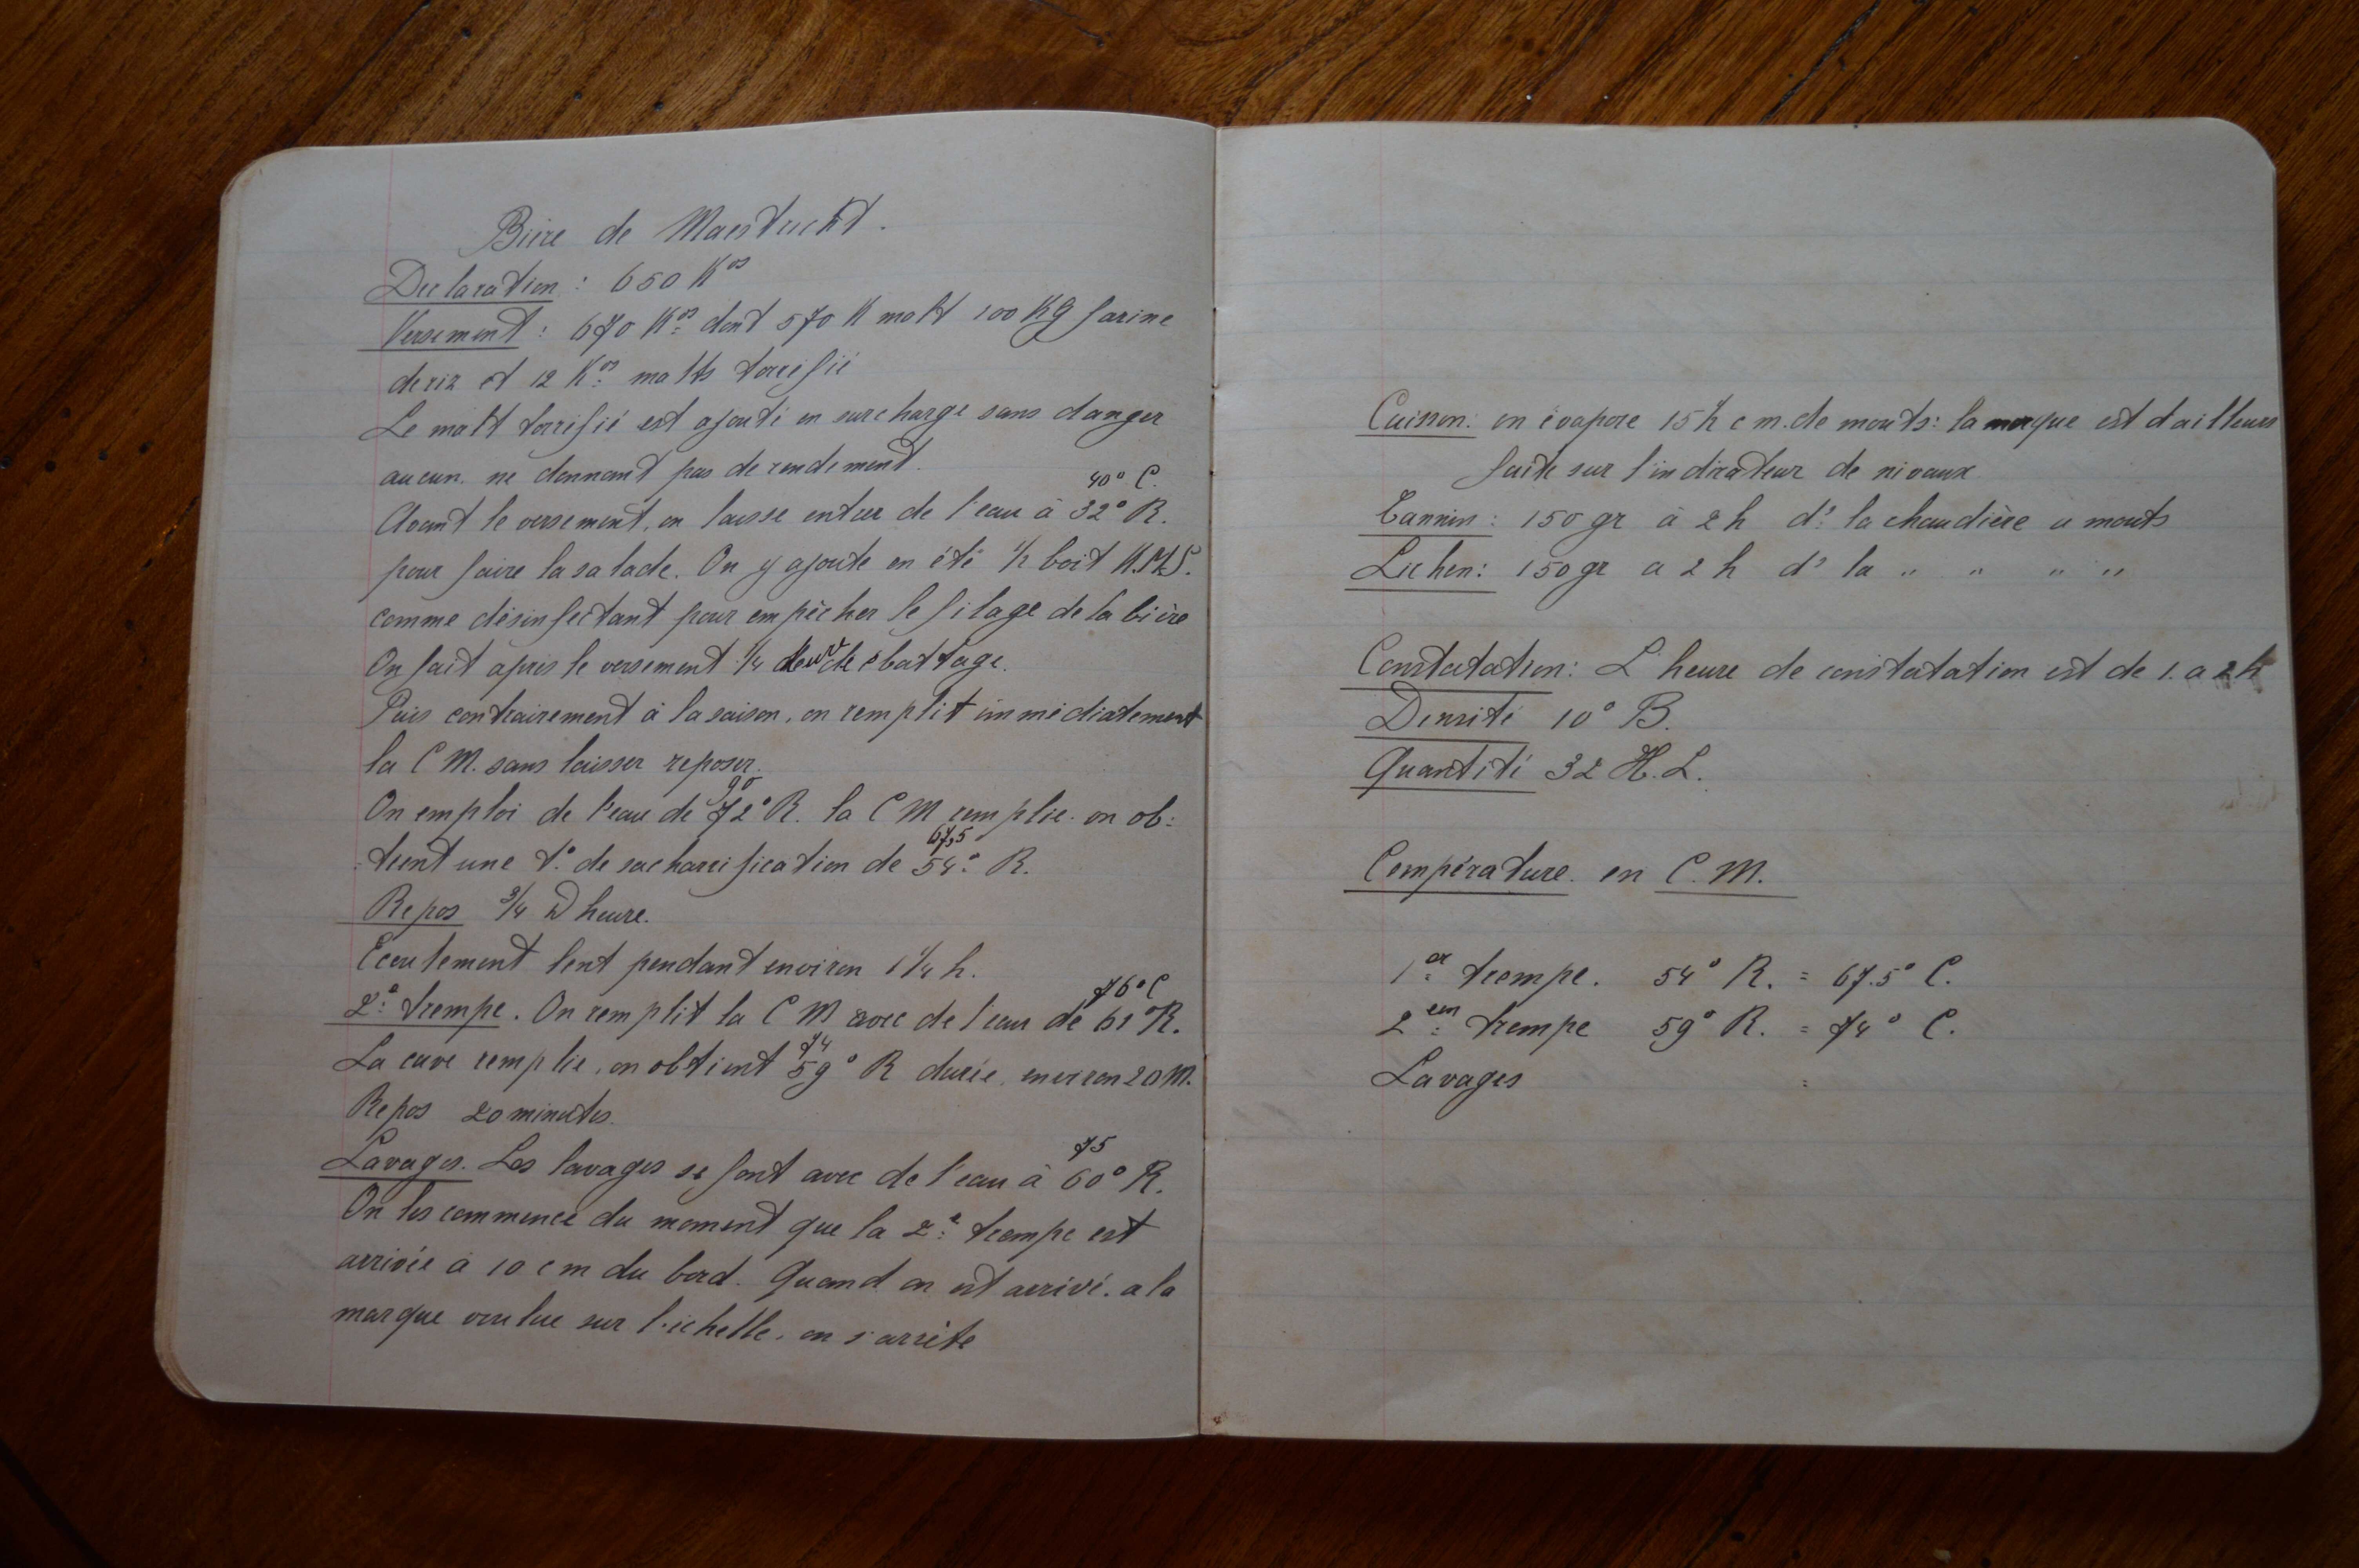 Bière de Maestricht.
Declaration : 650 Kos
Versement : 670 Kos dont 570 K malt 100 Kg farine
de riz et 12 Kos malts torréfié
Le malt torréfié est ajouté en surcharge sans danger
aucun. ne donnant pas de rendement.
40° C.
Avant le versement, on laisse entrer de l'eau à 32° R.
pour faire la salade. On y ajoute en été 1/2 boit K.M.S.
comme désinfectant pour empêcher le filage de la bière
On fait après le versement 1/4 heure débattage.
Puis contrairement à la saison, on remplit immédiatement
la C M. sans laisser reposer.
90
On emploi de l'eau de 72° R. la C M remplie. on ob=
67,5
=tient une t° de sacharrification de 54° R.
Repos 3/4 D heure.
Ecoulement lent pendant environ 1 1/4 h.
76° C
2e trempe. On remplit la C M avec de l'eau de 61° R.
74
La cuve remplie, on obtient 59° R durée, environ 20 M.
Repos 20 minutes.
75
Lavages. Les lavages se font avec de l'eau à 60° R.
On les commence du moment que la 2e trempe est
arrivée à 10 cm du bord. Quand on est arrivé. a la
marque voulue sur l'échelle, on s'arrête
Cuisson: on évapore 15 1/2 c m. de mouts: la marque est d'ailleurs
faite sur l'indicateur de nivaux.
Tannin : 150 gr à 2 h ds la chaudière a mouts
Lichen : 150 gr a 2 h ds la " " " "
Constatation : L'heure de constatation est de 1. a 2 h
Densité 10° B.
Quantité 32 H. L.
Température en C. M.
1er trempe. 54° R. = 67.5° C.
2em trempe 59° R. = 74° C.
Lavages =